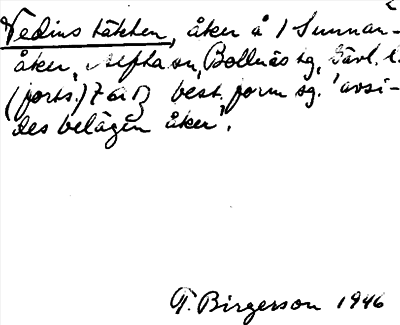 Vedins täkten, åker å 1 Sunnan-
åker, Alfta sn, Bollnäs tg, Gävl. l.
(forts.) best. form sg. 'avsi-
des belägen åker'.
T. Birgerson 1946